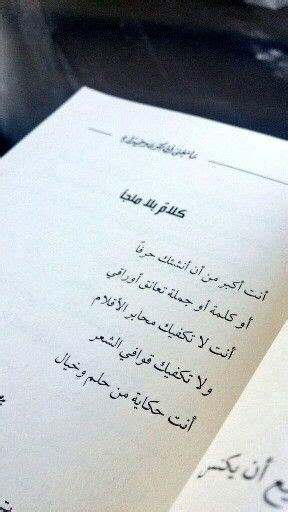 كلامٌ بلا ملجأ
أنت أكبر من أن أنشئك حرفاً
أو كلمة أو جملة تعانق أوراقي
أنت لا تكفيك محابر الأقلام
ولا تكفيك قوافي الشعر
أنت حكاية من حلم وخيال
أن